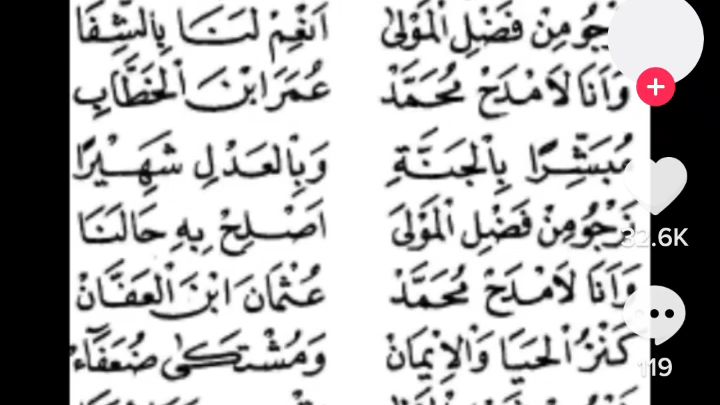 نَرْجُو مِنْ فَضْلِ الْمَوْلَى اَنْعِمْ لَنَا بِالشِّفَا
وَاَنَا لَامْدَحْ مُحَمَّدْ عُمَرَ ابْنَ الْخَطَّابِ
مُبَشِّرًا بِالْجَنَّةِ وَبِالْعَدْلِ شَهِيْرًا
نَرْجُو مِنْ فَضْلِ الْمَوْلَى اَصْلِحْ بِهِ حَالَنَا
وَاَنَا لَامْدَحْ مُحَمَّدْ عُثْمَانَ ابْنَ الْعَفَّانْ
كَنْزُ الْحَيَا وَالْاِيْمَانْ وَمُشْتَكَى ضُعَفَاءْ
32.6K
119